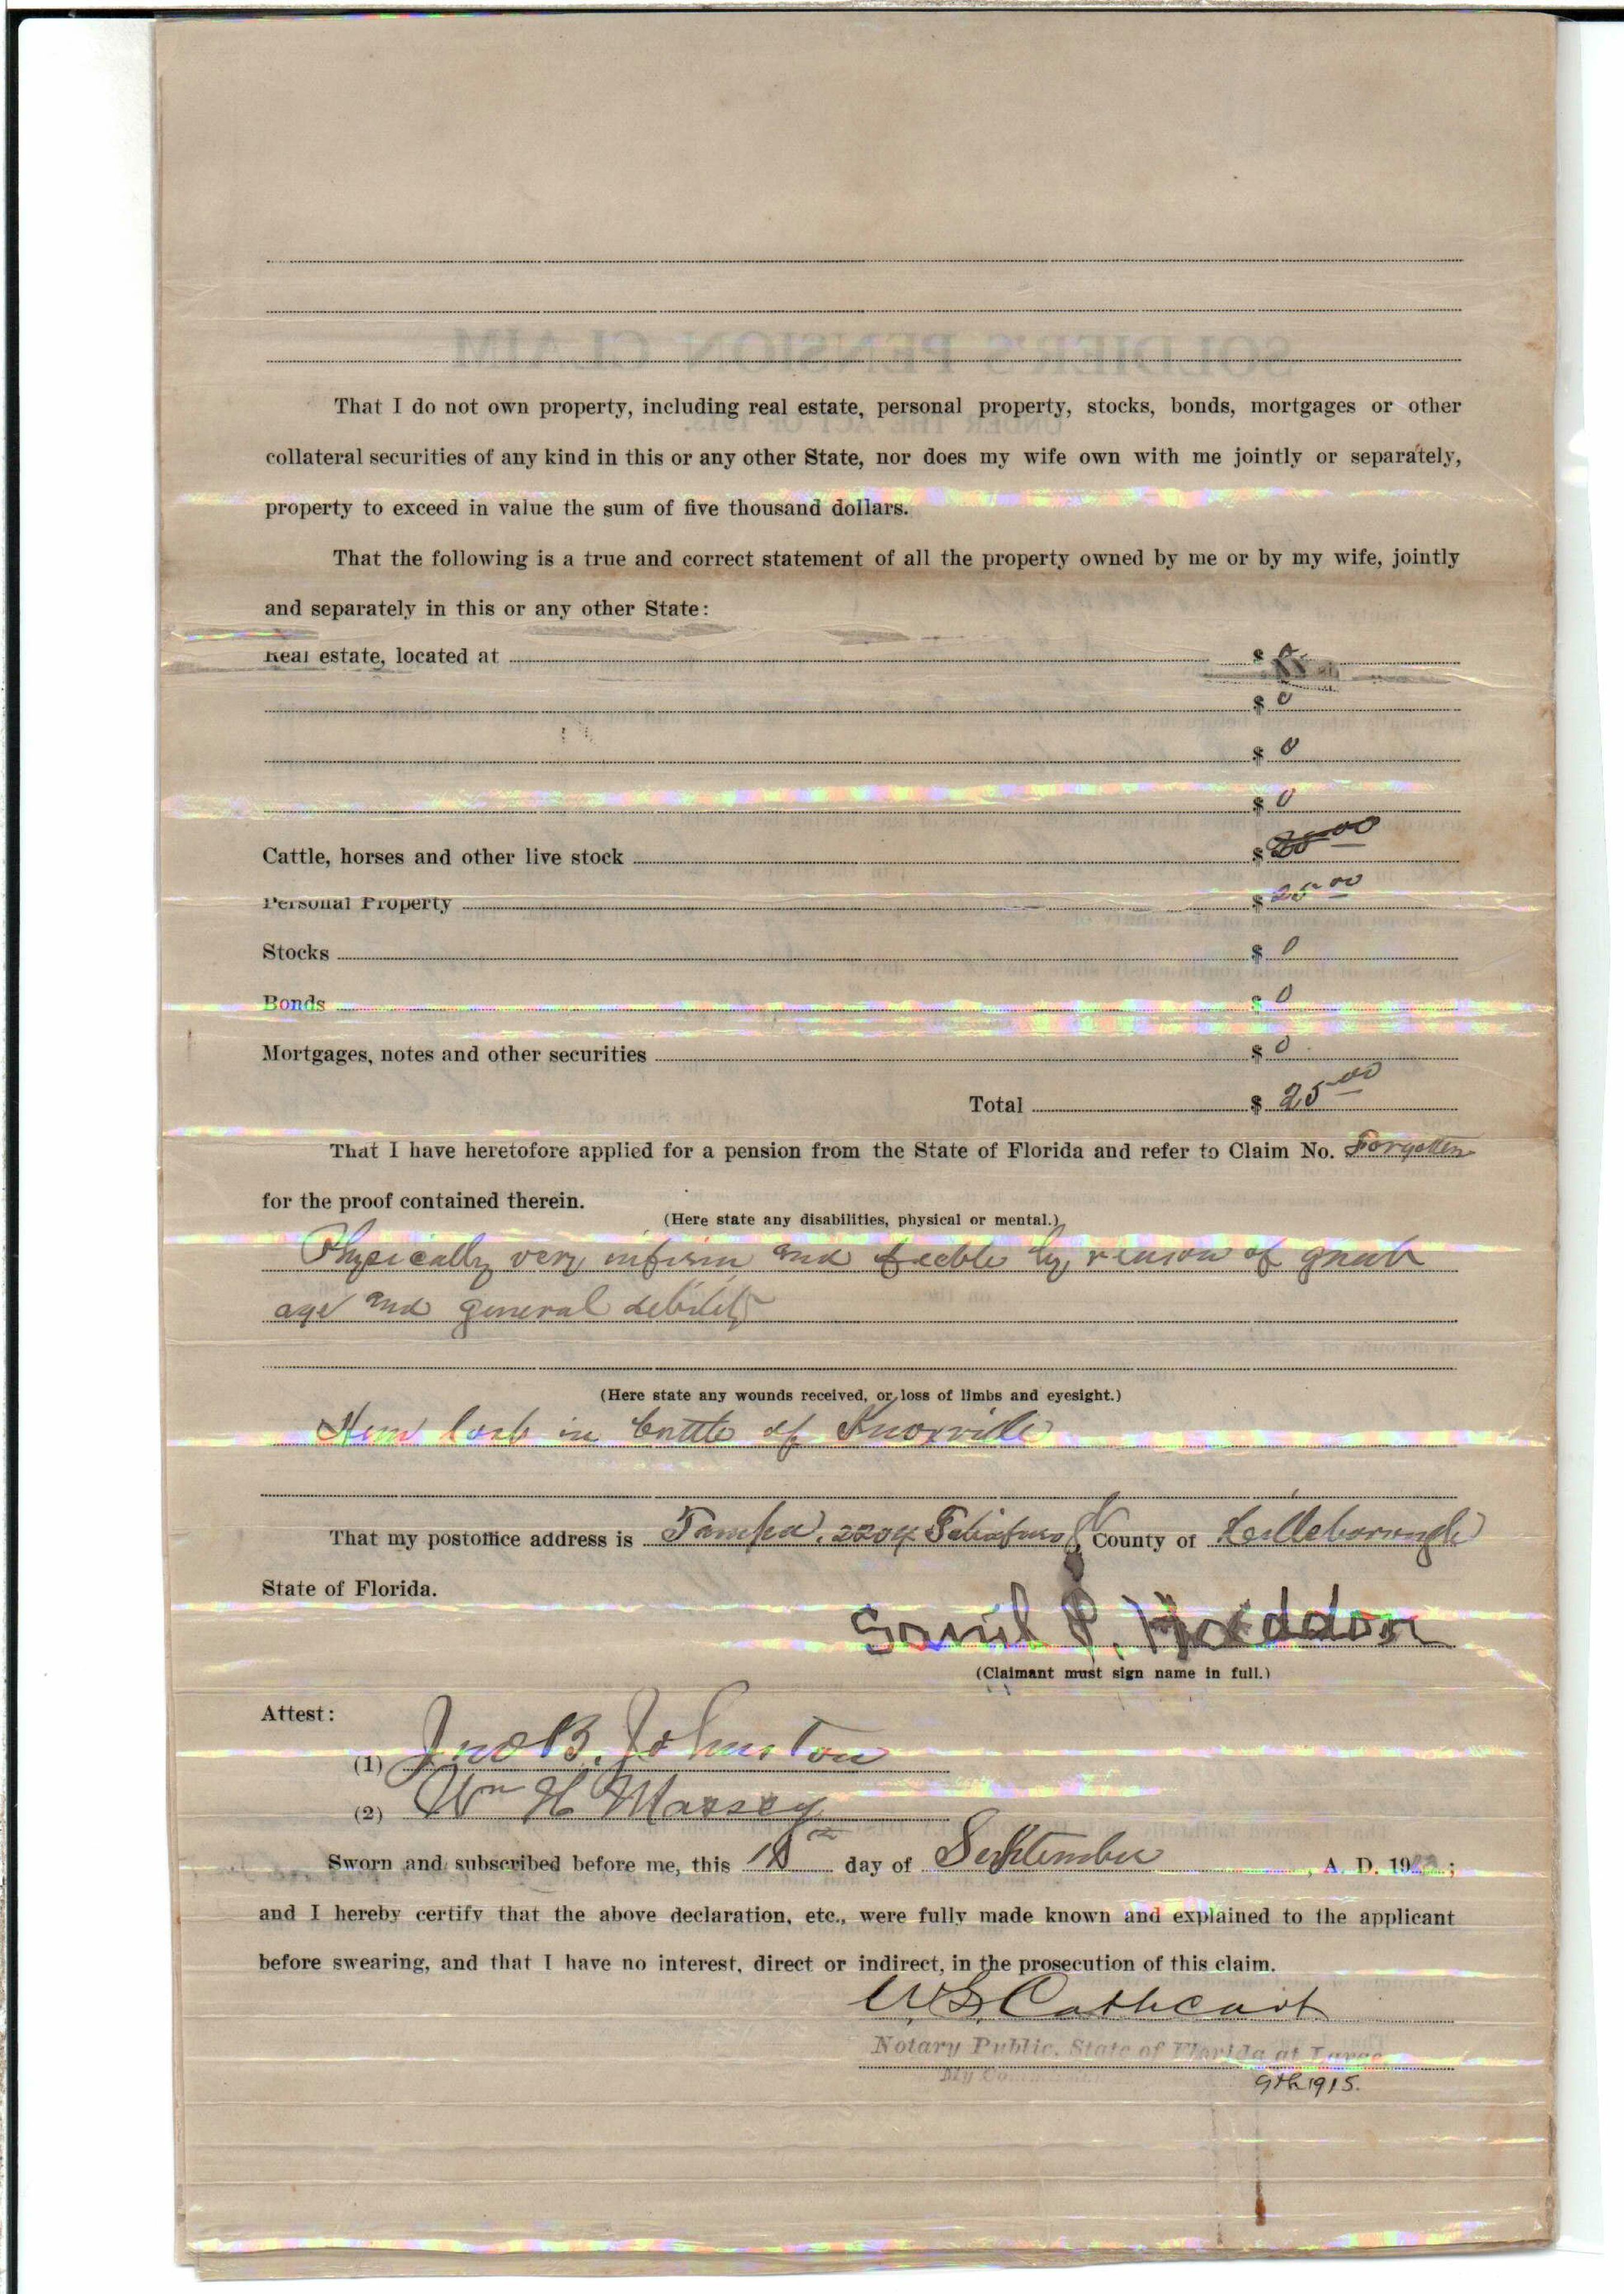 That I do not own property, including real estate, personal property, stocks, bonds, mortgages or other
collateral securities of any kind in this or any other State, nor does my wife own with me jointly or separately,
property to exceed in value the sum of five thousand dollars.
That the following is a true and correct statement of all the property owned by me or by my wife, jointly
and separately in this or any other State:
Real estate, located at $
$ 0
$ 0
$ 0
Cattle, horses and other live stock $
Personal Property $ 25 00
Stocks $ 0
Bonds $ 0
Mortgages, notes and other securities $ 0
Total $ 25 00
That I have heretofore applied for a pension from the State of Florida and refer to Claim No. Forgotten
for the proof contained therein.
(Here state any disabilities, physical or mental.)
Physically very infirm and feeble by reason of great
age and general debility
(Here state any wounds received, or loss of limbs and eyesight.)
lost in battle of Knoxville
That my postoffice address is Tampa, 2204 County of Hillsborough
State of Florida.
Saml P. Haddon
(Claimant must sign name in full.)
Attest:
(1) Jno B. Johnston
(2) Wm H Massey
Sworn and subscribed before me, this 18th day of September, A. D. 19 ;
and I hereby certify that the above declaration, etc., were fully made known and explained to the applicant
before swearing, and that I have no interest, direct or indirect, in the prosecution of this claim.
Cathcart
Notary Public, State of Florida at Large
My
9th 1915.